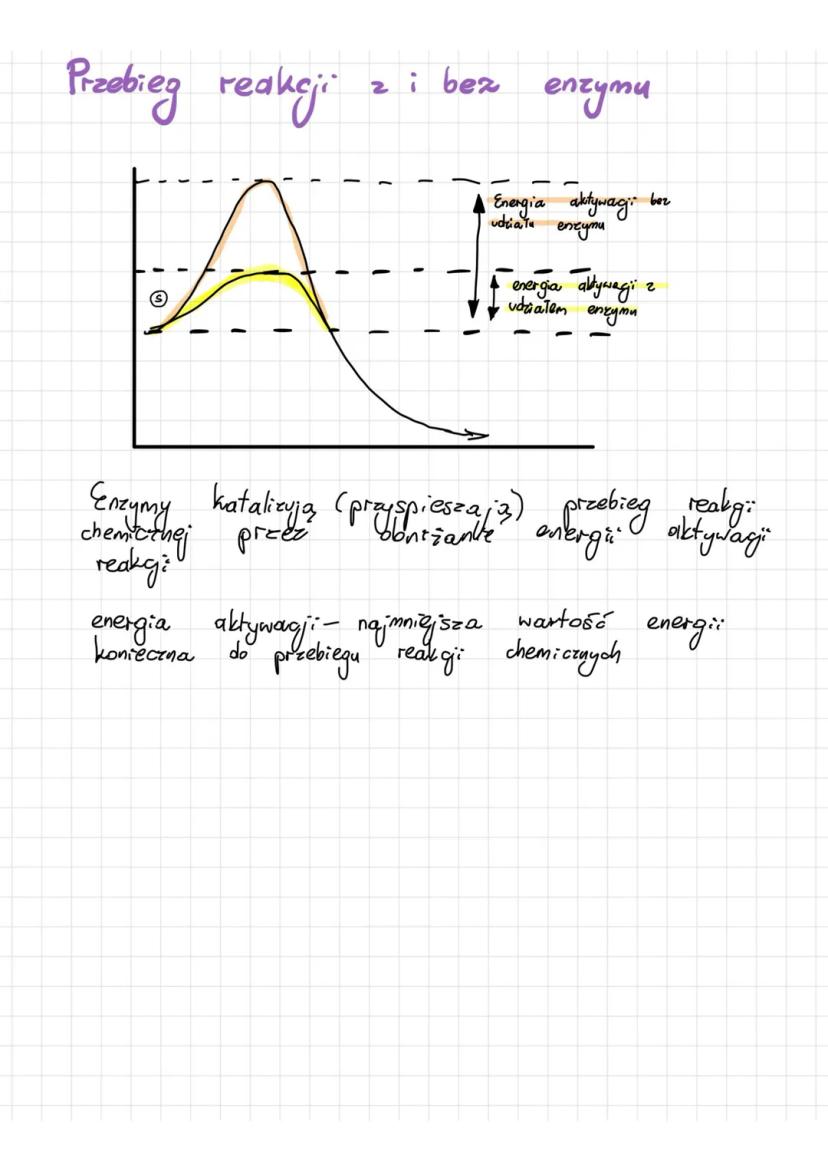 Przebieg reakcji z i bez enzymu
Energia aktywacji bez
udziału enzymu
S
energia aktywacji z
udziałem enzymu
Enzymy katalizują (przyspieszają) przebieg reakcji
chemicznej przez obniżanie energii aktywacji
reakcji
energia aktywacji - najmniejsza wartość energii
konieczna do przebiegu reakcji chemicznych